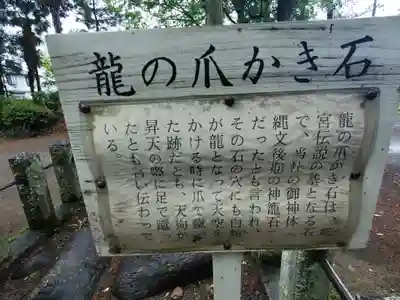 龍の爪かき石
龍の爪かき石は、蛇
宮伝説の基となる石
で、当社の御神体
縄文後期の神籠石
だったとも言われ、
その石の穴にも白蛇
が龍となって天空を
かける時に爪で蹴っ
た跡だとも、天狗が
昇天の際に足で蹴っ
たとも言い伝わって
いる。